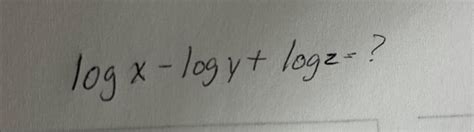 log x - log y + log z = ?